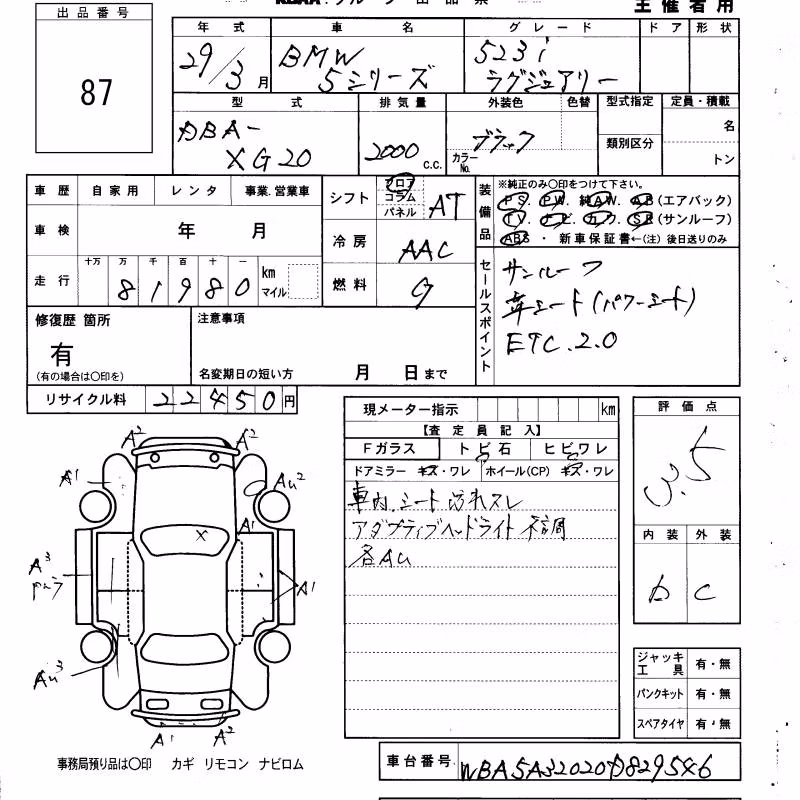 主催者用
出品番号
87
年式 車名 グレード ドア 形状
29/3月 BMW 5シリーズ 523i ラグジュアリー
型式 排気量 外装色 色替 型式指定 定員・積載
DBA-XG20 2000 c.c. ブラック カラーNo. 類別区分 名
トン
車歴 自家用 レンタ 事業.営業車
車検 年 月
走行 十万 万 千 百 十 一 km マイル
81980
シフト フロア コラム パネル AT
冷房 AAC
燃料 G
装備品 ※純正のみ〇印をつけて下さい。
PS. PW. 純AW. AB(エアバッグ)
TV. ナビ. カワ. SR(サンルーフ)
ABS ・ 新車保証書←(注)後日送りのみ
セールスポイント
サンルーフ
革シート(パワーシート)
ETC.2.0
修復歴 箇所
有
(有の場合は〇印を)
注意事項
名変期日の短い方 月 日まで
リサイクル料 22450円
現メーター指示 km
【査定員記入】
Fガラス トビ石 ヒビワレ
ドアミラー キズ・ワレ ホイール(CP) キズ・ワレ
車内.シート 汚れスレ
アダプティブヘッドライト 不調
各AU
評価点
3.5
内装 外装
b C
ジャッキ工具 有・無
パンクキット 有・無
スペアタイヤ 有・無
A2 A2
A1 AU2
X A1
A3
A1
AU3
A1 A2
事務局預り品は〇印 カギ リモコン ナビロム
車台番号 WBA5A32020D829546